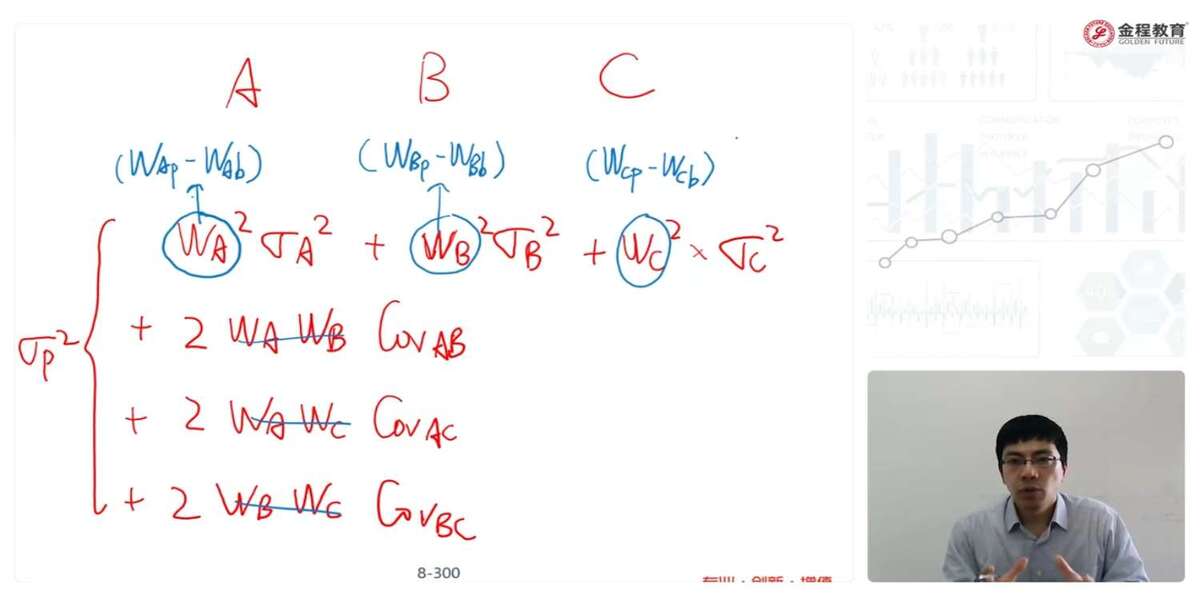 金程教育
GOLDEN FUTURE
A B C
(WAp-WAb) (WBp-WBb) (WCp-WCb)
σp² { WA² σA² + WB² σB² + WC² × σC²
+ 2 WA WB CovAB
+ 2 WA WC CovAC
+ 2 WB WC CovBC
8-300
专业·创新·增值